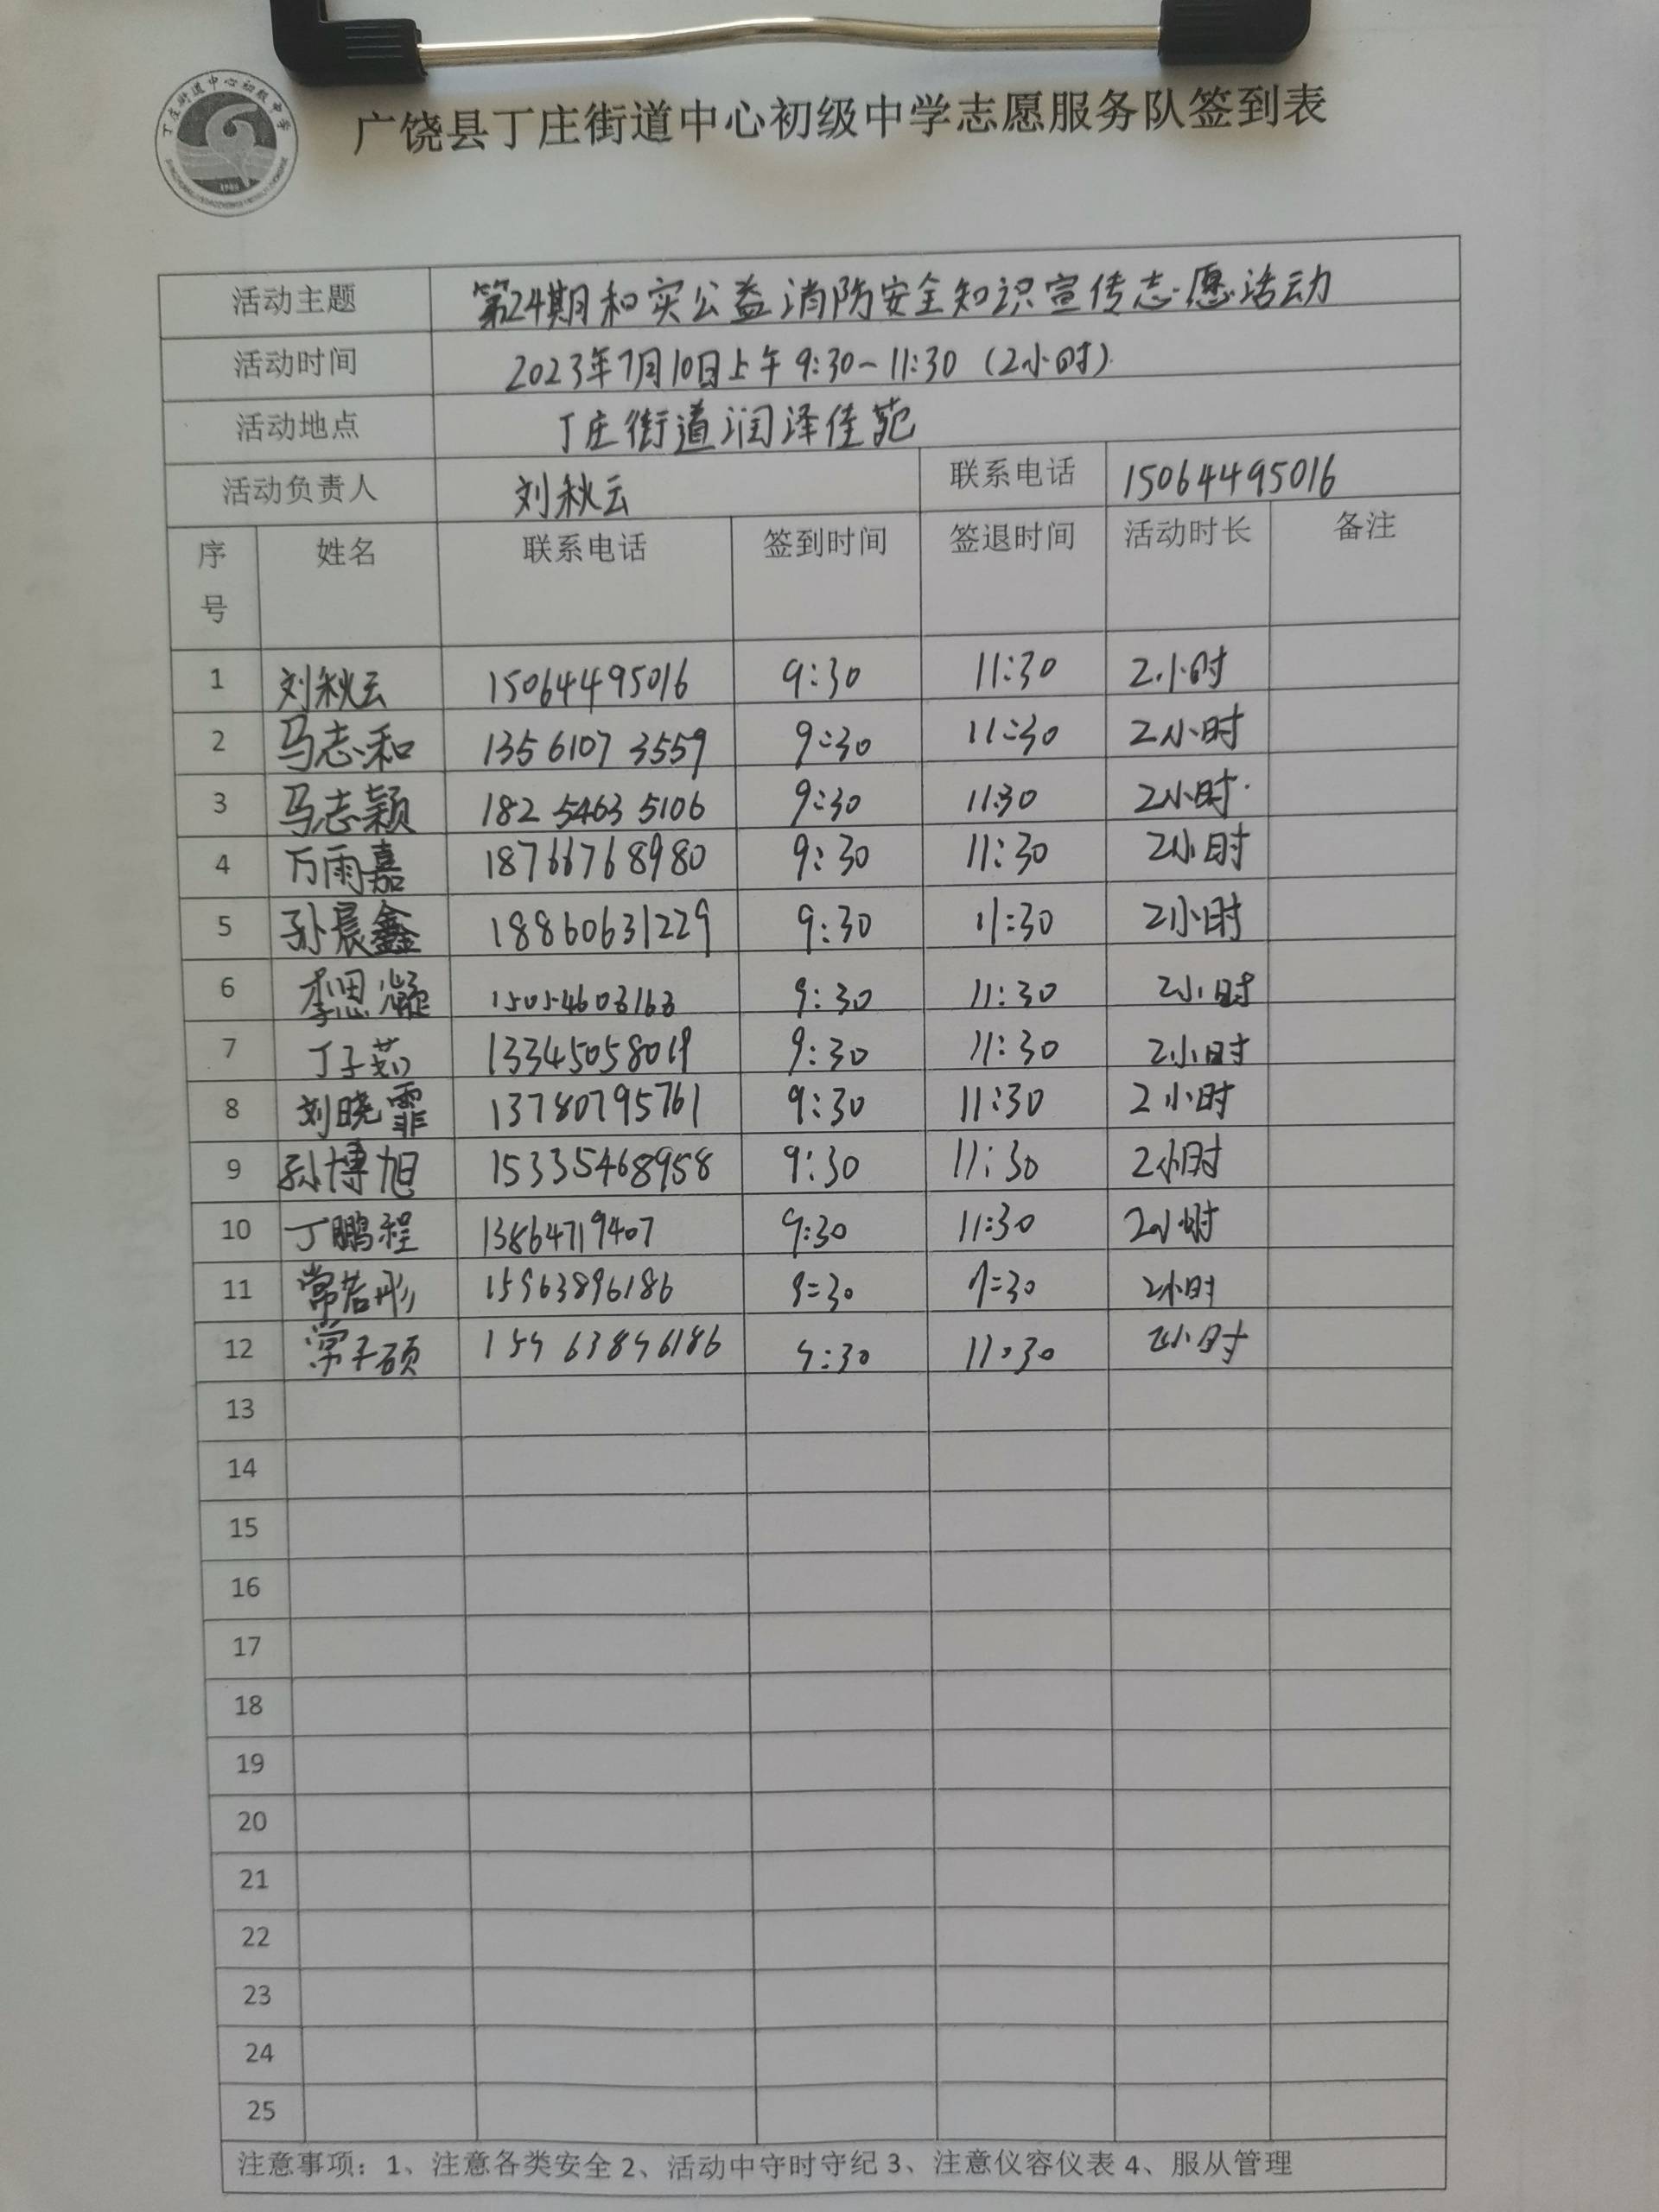 丁庄街道中心初级中学
1985
广饶县丁庄街道中心初级中学志愿服务队签到表
活动主题 第24期和实公益消防安全知识宣传志愿活动
活动时间 2023年7月10日上午9:30-11:30(2小时)
活动地点 丁庄街道润泽佳苑
活动负责人 刘秋云 联系电话 15064495016
序号 姓名 联系电话 签到时间 签退时间 活动时长 备注
1 刘秋云 15064495016 9:30 11:30 2小时
2 马志和 135 6107 3559 9:30 11:30 2小时
3 马志颖 182 5463 5106 9:30 11:30 2小时
4 万雨嘉 18766768980 9:30 11:30 2小时
5 孙晨鑫 18860631229 9:30 11:30 2小时
6 李思凝 15054603163 9:30 11:30 2小时
7 丁子茹 13345058019 9:30 11:30 2小时
8 刘晓霏 13780795761 9:30 11:30 2小时
9 孙博旭 15335468958 9:30 11:30 2小时
10 丁鹏程 13864719407 9:30 11:30 2小时
11 常若彤 15963896186 9:30 11:30 2小时
12 常子硕 159 63896186 9:30 11:30 2小时
13
14
15
16
17
18
19
20
21
22
23
24
25
注意事项：1、注意各类安全 2、活动中守时守纪 3、注意仪容仪表 4、服从管理